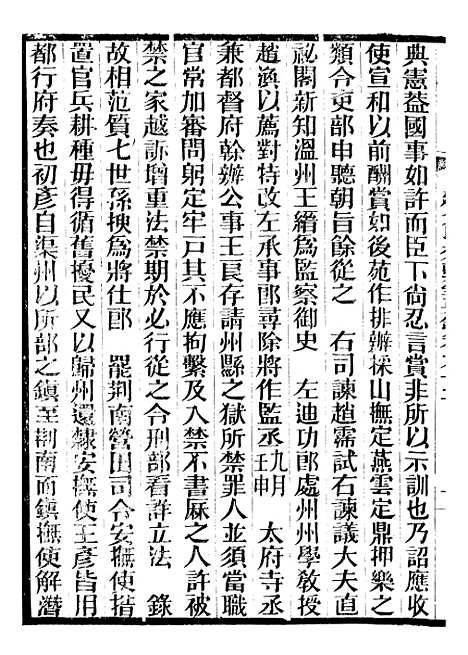 典憲葢國事如許而臣下尙忍言賞非所以示訓也乃詔應收
使宣和以前酬賞如後苑作排辦採山撫定燕雲定鼎押樂之
類令吏部申聽朝旨餘從之　右司諫趙霈試右諫議大夫直
祕閣新知溫州王縉爲監察御史　左迪功郎處州州學敎授
趙渙以薦對特改左承事郎尋除將作監丞九月壬申　太府寺丞
兼都督府幹辦公事王良存請州縣之獄所禁罪人並須當職
官常加審問躬定牢戸其不應拘繫及入禁不書厤之人許被
禁之家越訴增重法禁期於必行從之令刑部看詳立法　錄
故相范質七世孫揆爲將仕郎　罷荆南營田司令安撫使措
置官兵耕種毋得循舊擾民又以歸州還隸安撫使王彥皆用
都行府奏也初彥自渠州以所部之鎭至荆南而鎭撫使解潛